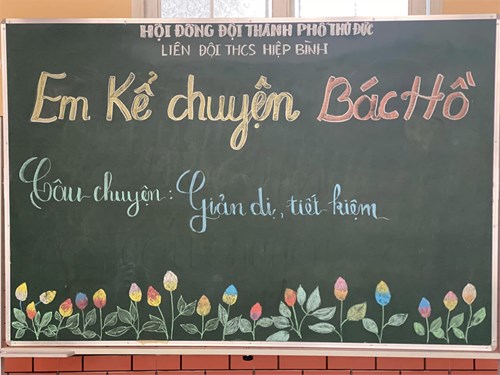 HỘI ĐỒNG ĐỘI THÀNH PHỐ THỦ ĐỨC
LIÊN ĐỘI THCS HIỆP BÌNH
Em Kể chuyện Bác Hồ
Câu chuyện: Giản dị, tiết kiệm